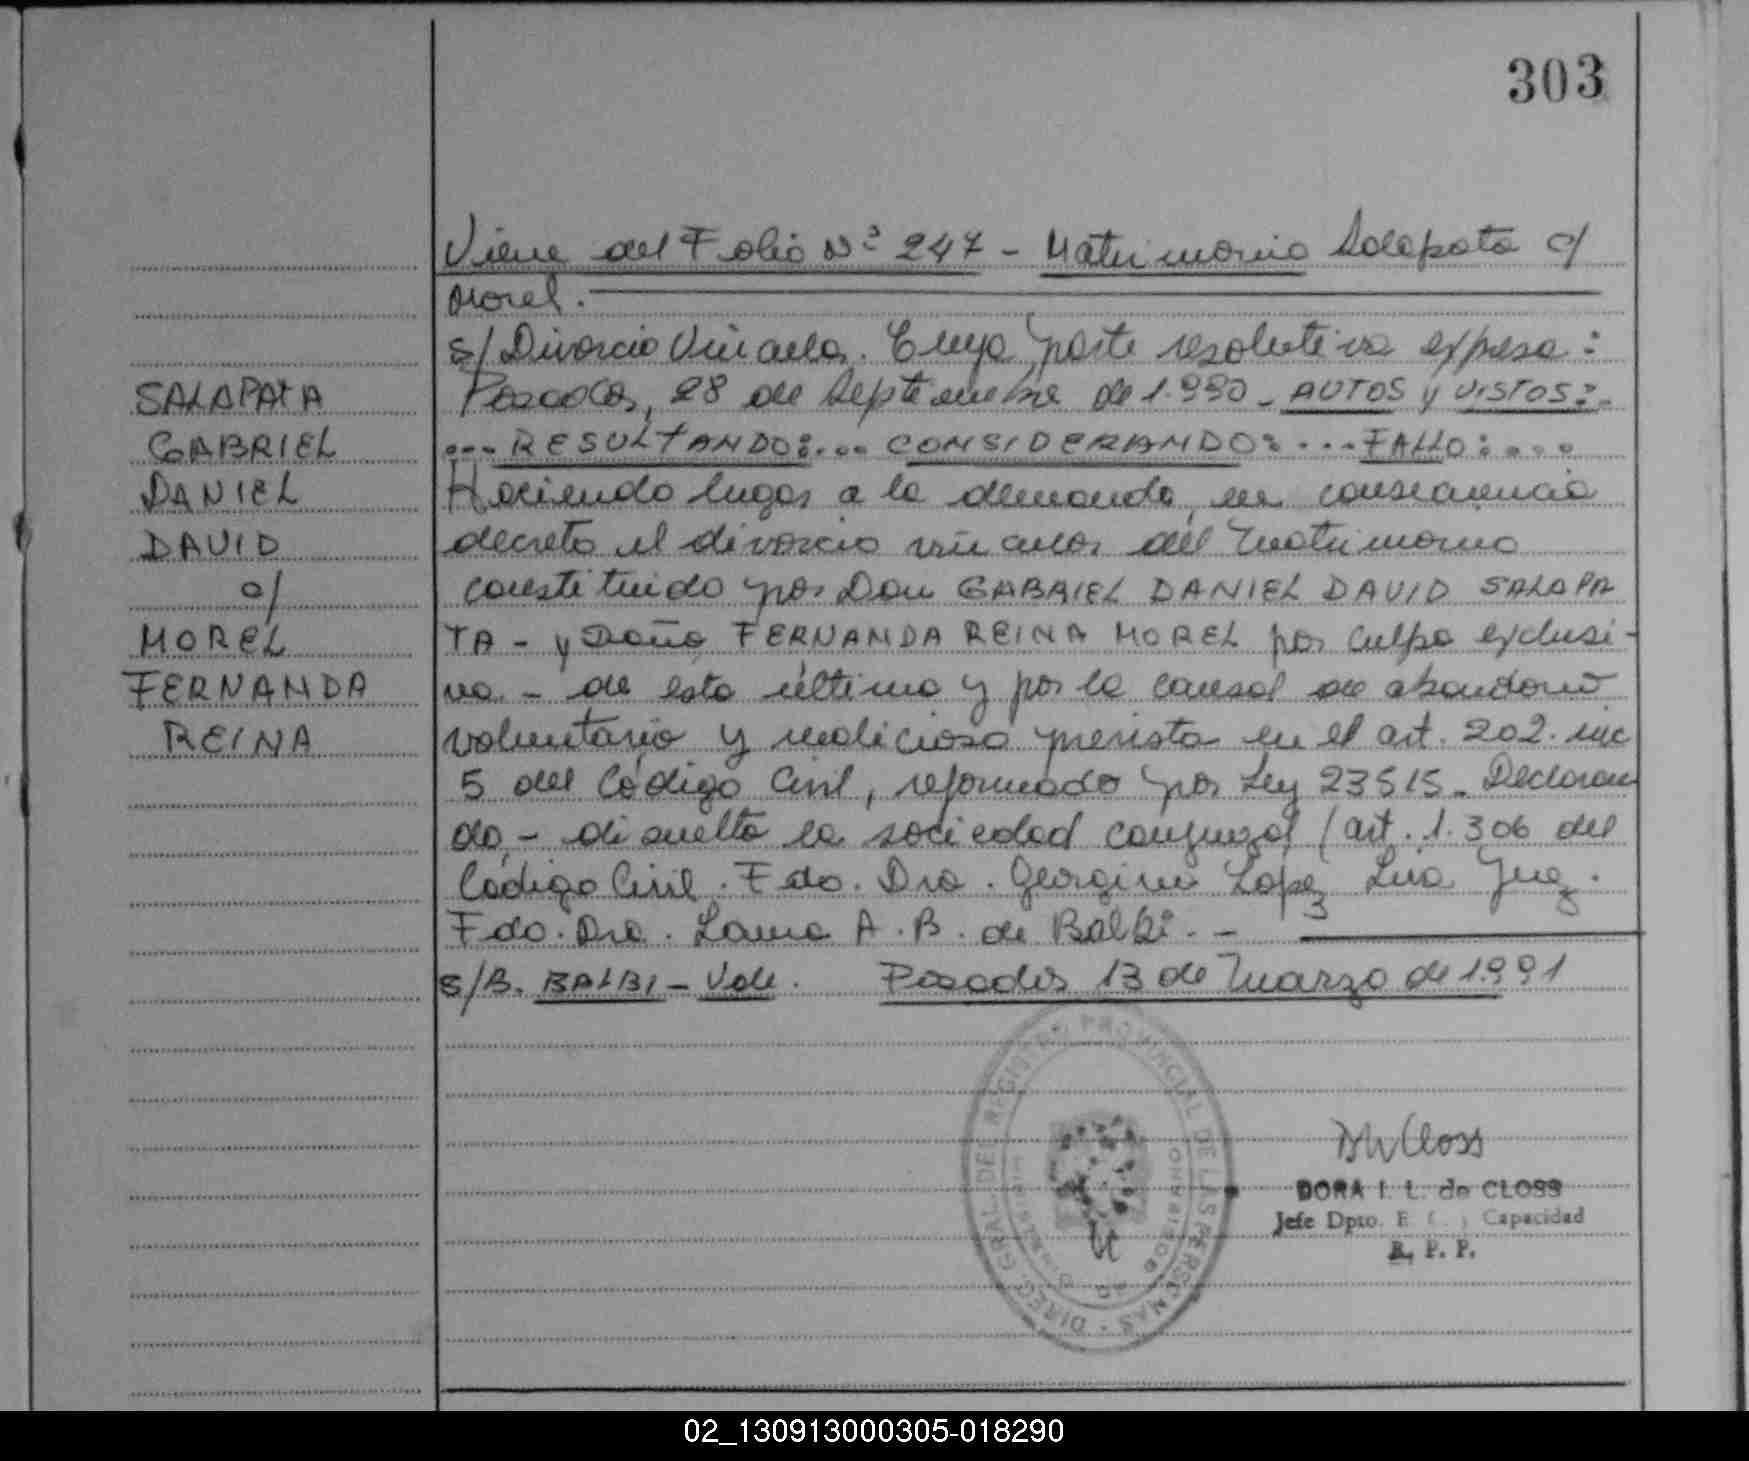 303
Viene del Folio Nº 247 - Matrimonio Salapata c/
Morel.
s/ Divorcio Vincular. Cuya parte resolutiva expresa:
Posadas, 28 de Septiembre de 1.990 - AUTOS y VISTOS:.
... RESULTANDO:... CONSIDERANDO: ... FALLO: ....
Haciendo lugar a la demanda, en consecuencia
decreto el divorcio vincular del matrimonio
constituido por Don GABRIEL DANIEL DAVID SALAPA
TA - y Doña FERNANDA REINA MOREL por culpa exclusi-
va - de esta última y por la causal de abandono
voluntario y malicioso prevista en el art. 202. inc
5 del Código Civil, reformado por Ley 23515. Declaran
do - disuelta la sociedad conyugal (art. 1.306 del
Código Civil. Fdo. Dra. Georgina Lopez Liva Juez.
Fdo. Dra. Laura A. B. de Balbi. -
S/B. BALBI - Vale. Posadas 13 de Marzo de 1991
SALAPATA
GABRIEL
DANIEL
DAVID
c/
MOREL
FERNANDA
REINA
DIREC. GRAL. DEL REGISTRO PROVINCIAL DE LAS PERSONAS
DORA I. L. de CLOSS
Jefe Dpto. E. C. y Capacidad
R. P. P.
02_130913000305-018290